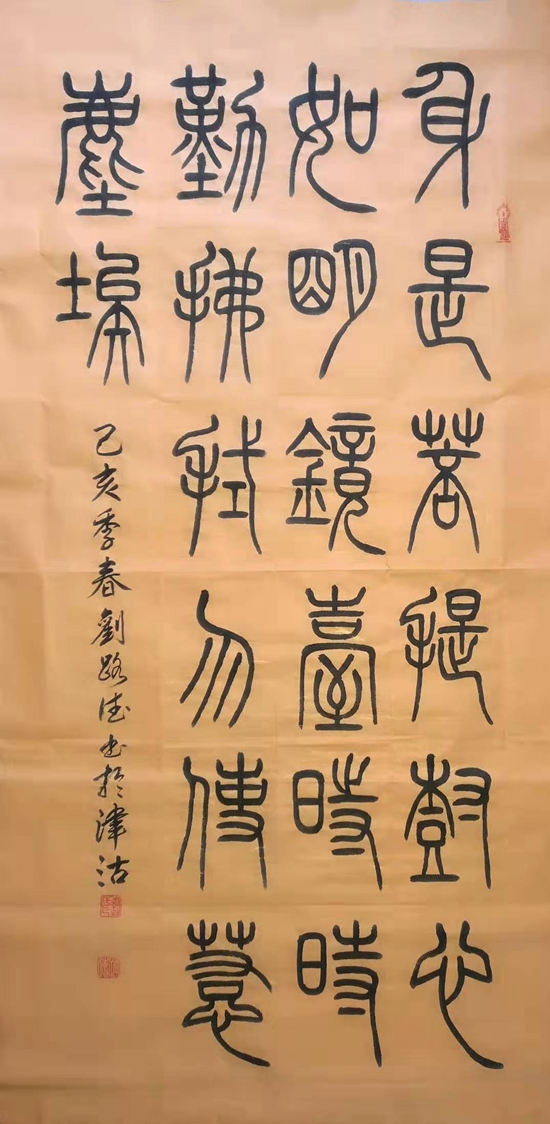 身是菩提樹心
如明鏡臺時時
勤拂拭勿使惹
塵埃
己亥季春劉路德书於津沽